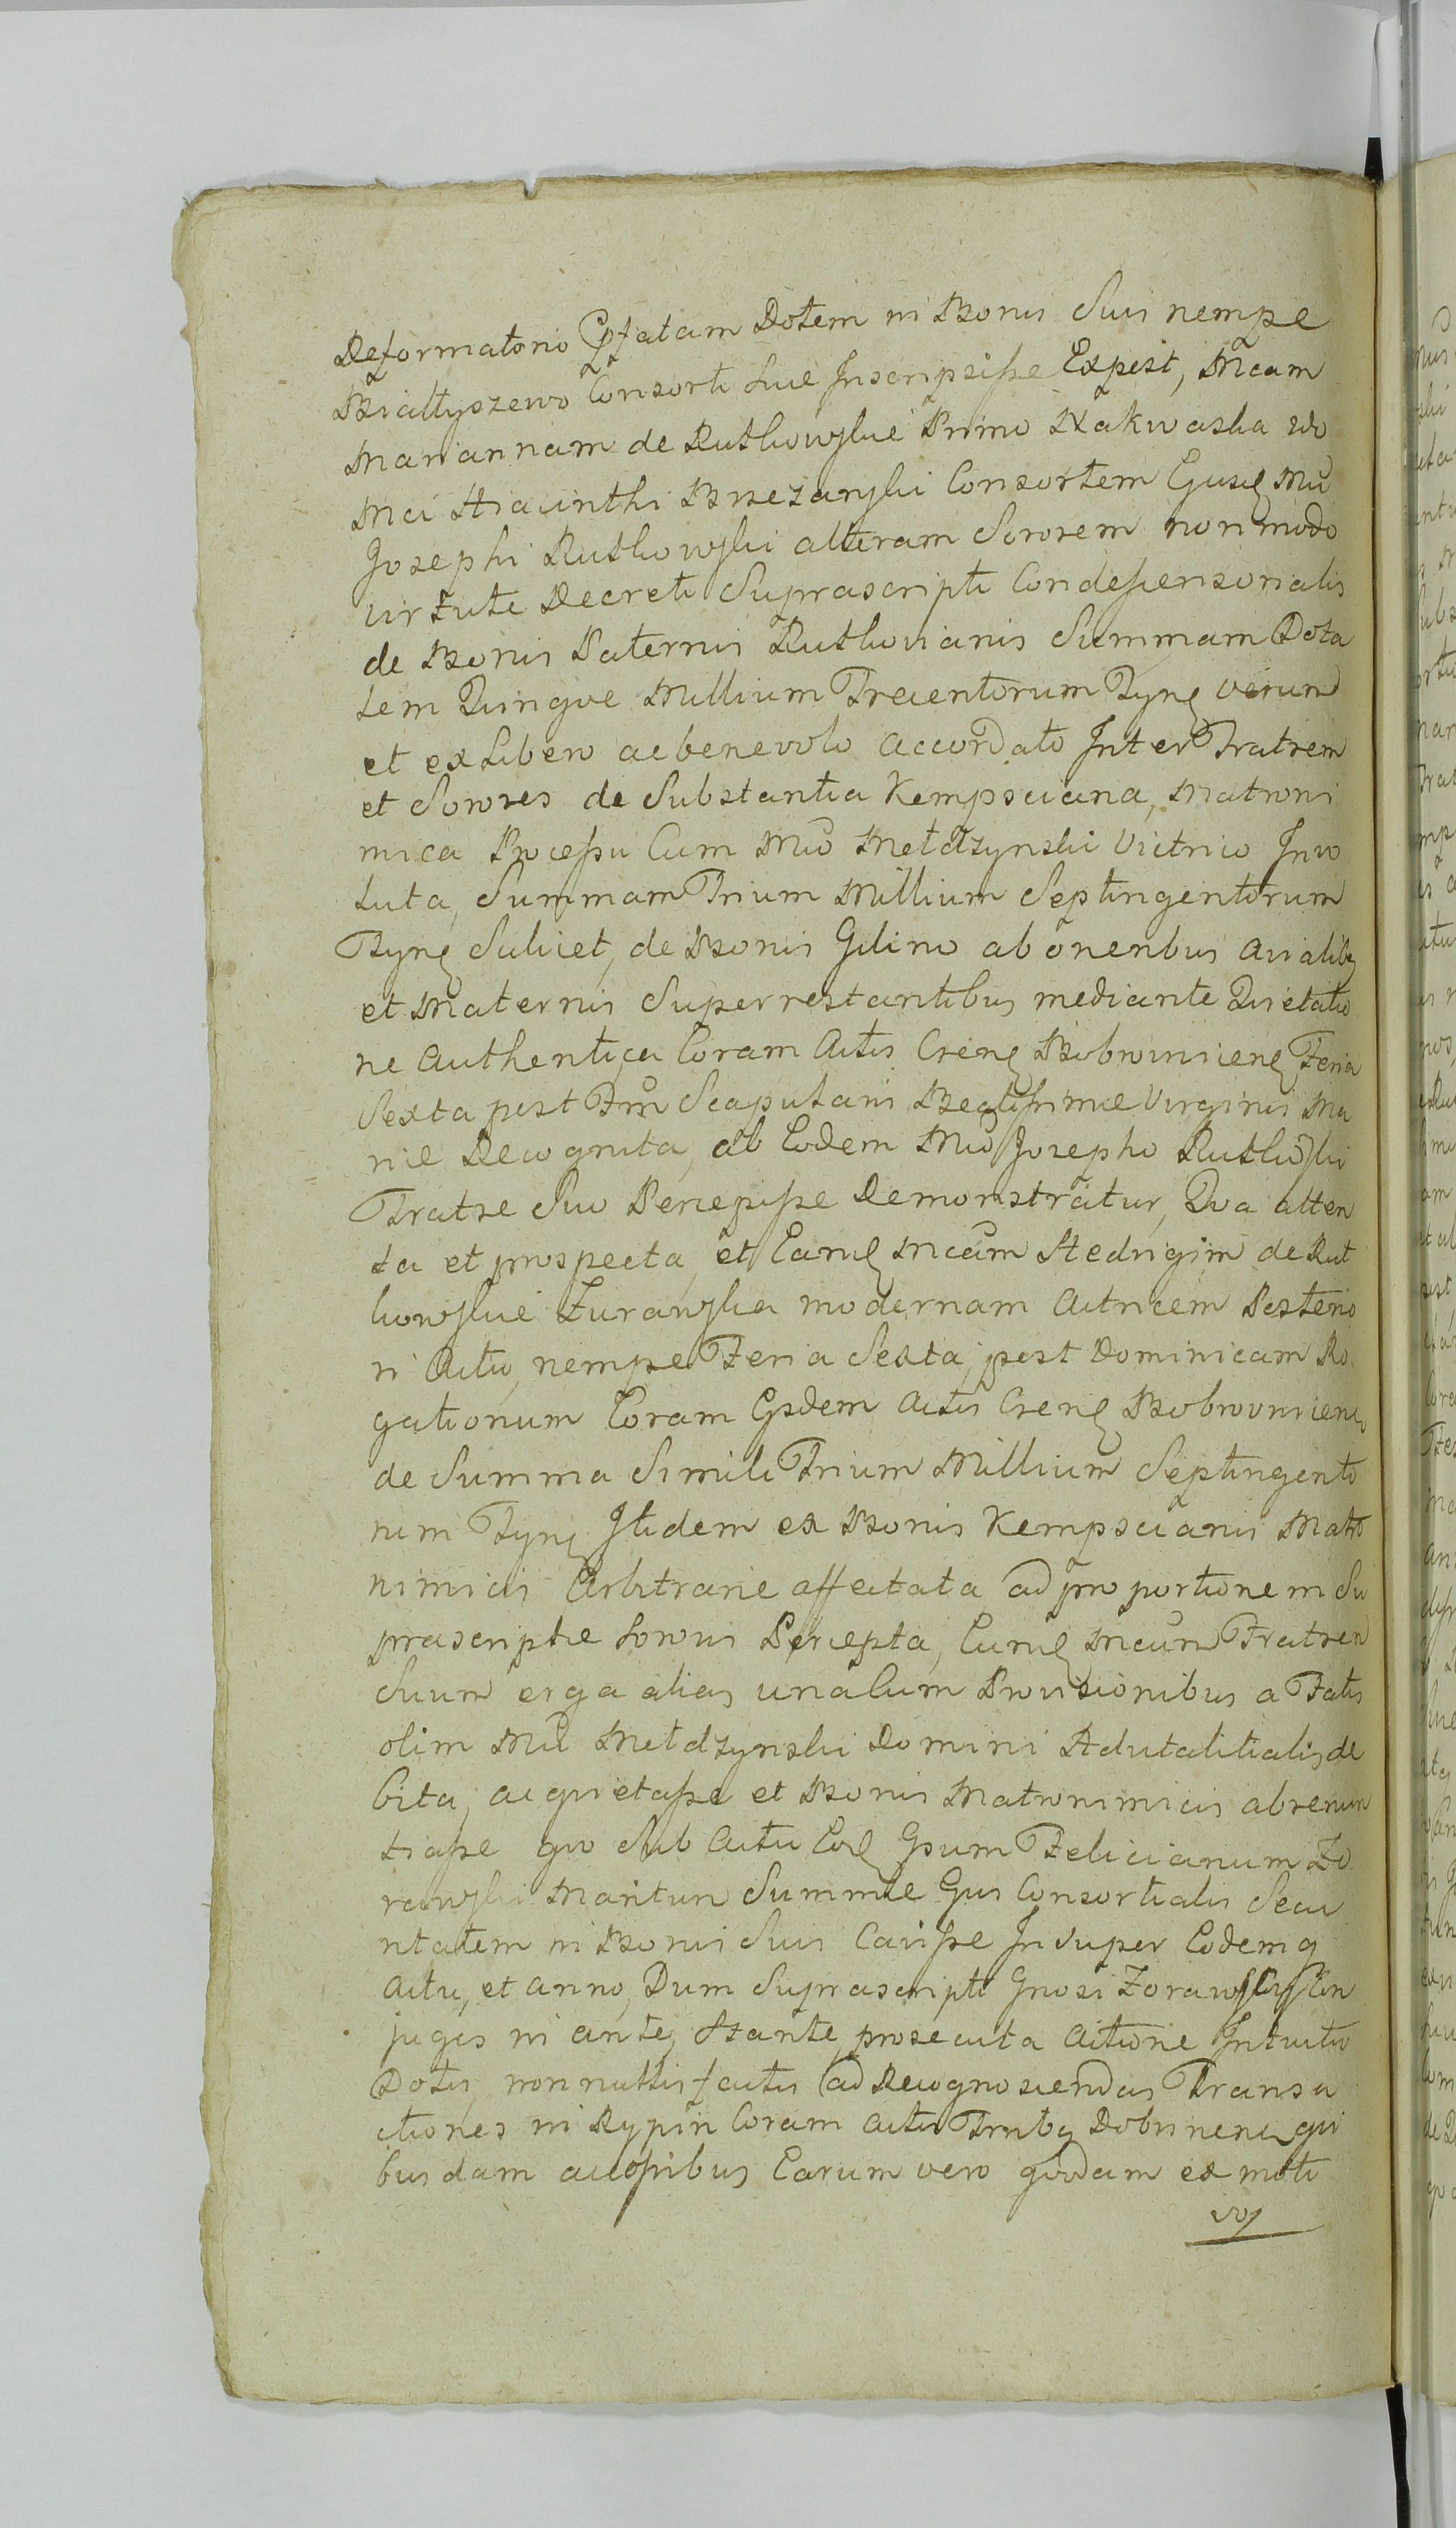 Reformatorio Pfatam Dotem in Bonis Suis nempe
Białłyszewo Consorti Suæ Inscripsisse Expost, Mcam
Mariannam de Rutkowskie Primo Nakwaska 2do
Mci Hiacinthi Brezanski Consortem Ejusq Mci
Josephi Rutkowski alteram Sororem non modo
virtute Decreti Suprascripti Condescensorialis
de Bonis Paternis Rutkovianis Summam Dota
lem Quinque Millium Trecentorum Tynf verum
et ex Libero ac benevolo accordato Inter Fratrem
et Sorores de Substantia Kempsciana, Matroni
mica Processu Cum Mco Metdzynski Victrico Invo
luta, Summam Trium Millium Septingentorum
Tynf Scilicet, de Bonis Gilino ab oneribus avialibq
et Maternis Superrestantibus mediante Quietatio
ne Authentica Coram Actis Crenq Bobrovniceng Feria
Sexta post Fm Scapularis Beatissimæ Virginis Ma
riæ Recognita, ab Eodem Mco Josepho Rutkowski
Fratre Suo Percepisse Demonstratur, Qva atten
ta et prospecta, et Eamq Mcam Hedvigim de Rut
kowskie Zurawska modernam Actricem Posterio
ri Actu, nempe Feria Sexta, post Dominicam Ro
gationum Coram Gsdem Actis Crenq Bobrovnicenq
de Summa Simili Trium Millium Septingento
rum Tynf Itidem ex Bonis Kempscianis Matro
nimicis Arbitrarie affectata ad proportionem Su
prascriptæ Sororis Percepta, Eumq Mcum Fratrem
Suum erga alias una Cum Provisionibus a Fatis
olim Mci Metdzynski Domini Advitalitialis de
bita, acquietasse et Bonis Matronimicis abrenun
tiasse quo Sub Actu Eoq Gsum Felicianum Zo
rawski Maritum Summæ Gus Consortialis Secu
ritatem in Bonis Suis Cavisse Insuper Eodemq
Actu, et anno, Dum Suprascripti Gnosi Zorawscy Con
juges in ante, Stante prosecuta Actione Intuitu
Dotis, nonnullis factis ad Recognoscendas Transa
ctiones in Rypin Coram Actis Trntq Dobrinenq qui
busdam accessibus Earum vero quadam ex moti
vo